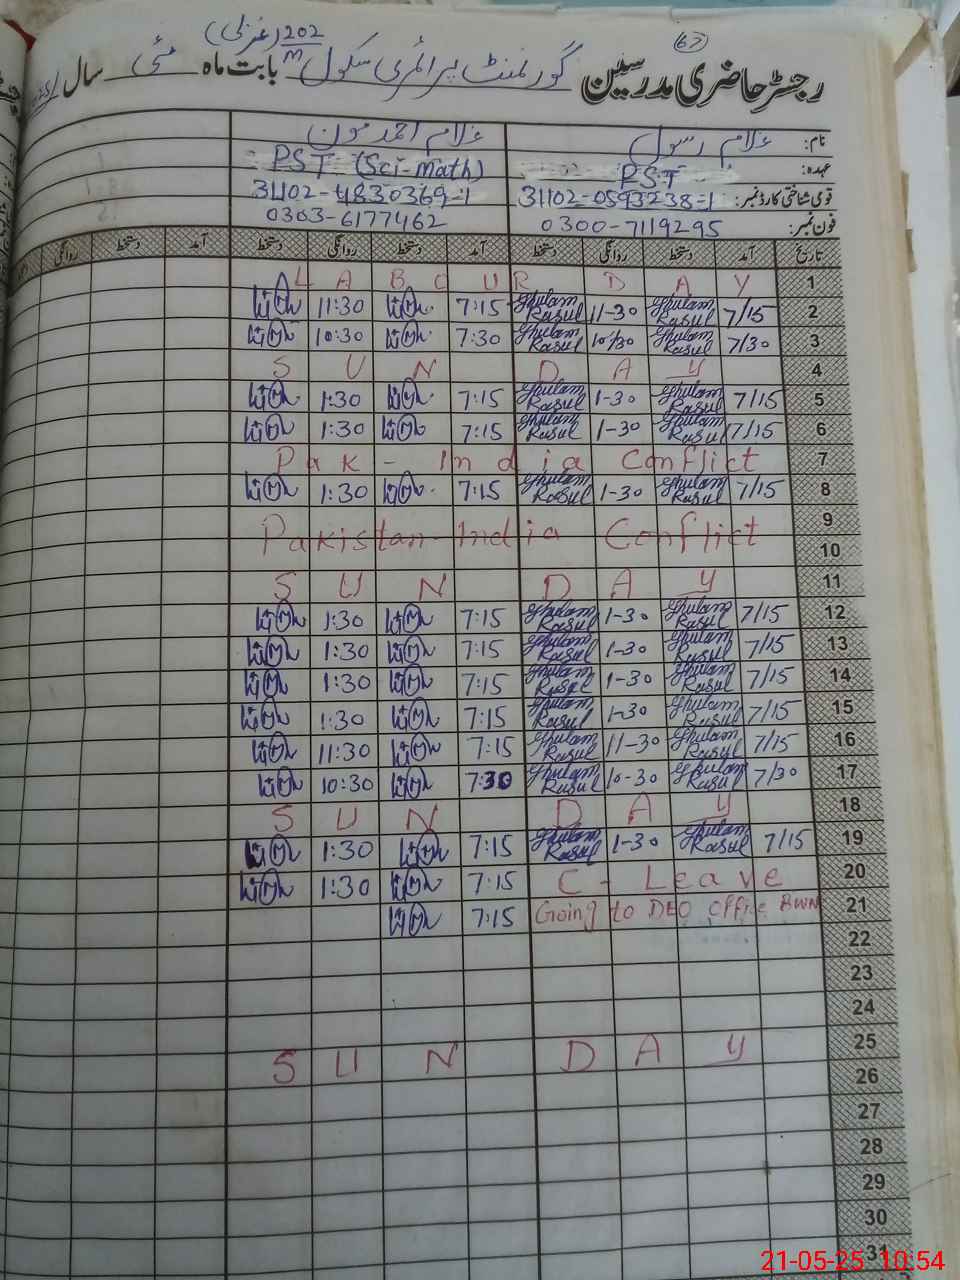 67
رجسٹر حاضری مدرسین گورنمنٹ پرائمری سکول 202/M (غزلی) بابت ماہ مئی سال
نام: غلام رسول غلام احمد مون
عہدہ: PST PST (Sci-Math)
قومی شناختی کارڈ نمبر: 31102-0593238-1 31102-4830369-1
فون نمبر: 0300-7119295 0303-6177462
تاریخ آمد دستخط روانگی دستخط آمد دستخط روانگی دستخط آمد دستخط روانگی
1 LABOUR DAY
2 7/15 Ghulam Rasul 11-30 Ghulam Rasul 7:15 11:30
3 7/30 Ghulam Rasul 10/30 Ghulam Rasul 7:30 10:30
4 SUNDAY
5 7/15 Ghulam Rasul 1-30 Ghulam Rasul 7:15 1:30
6 7/15 Ghulam Rasul 1-30 Ghulam Rasul 7:15 1:30
7 Pak-India Conflict
8 7/15 Ghulam Rasul 1-30 Ghulam Rasul 7:15 1:30
9 Pakistan-India Conflict
10
11 SUNDAY
12 7/15 Ghulam Rasul 1-30 Ghulam Rasul 7:15 1:30
13 7/15 Ghulam Rasul 1-30 Ghulam Rasul 7:15 1:30
14 7/15 Ghulam Rasul 1-30 Ghulam Rasul 7:15 1:30
15 7/15 Ghulam Rasul 1-30 Ghulam Rasul 7:15 1:30
16 7/15 Ghulam Rasul 11-30 Ghulam Rasul 7:15 11:30
17 7/30 Ghulam Rasul 10-30 Ghulam Rasul 7:30 10:30
18 SUNDAY
19 7/15 Ghulam Rasul 1-30 Ghulam Rasul 7:15 1:30
20 C-Leave 7:15 1:30
21 Going to DEO Office BWN 7:15
22
23
24
25 SUNDAY
26
27
28
29
30
31
21-05-25 10:54